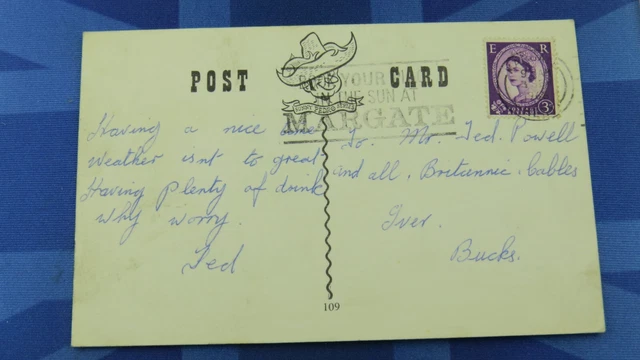 POST CARD
YOUR
THE SUN AT
MARGATE
E R
3D
Having a nice time
weather isnt to great
Having plenty of drink
why worry.
Ted
To. Mr. Ted. Powell
and all, Britannic. Cables
Iver.
Bucks.
109